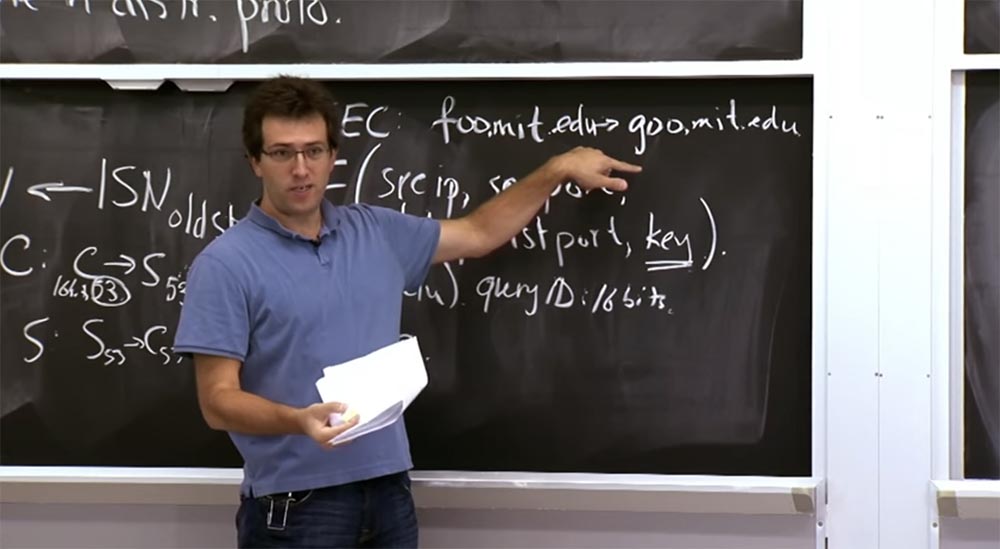 distr. proto.
EC: foo.mit.edu → goo.mit.edu
← ISN old
(src ip, src port,
port, key).
C: C → S 53
53 query ID: 16 bits.
S: S53 → C53